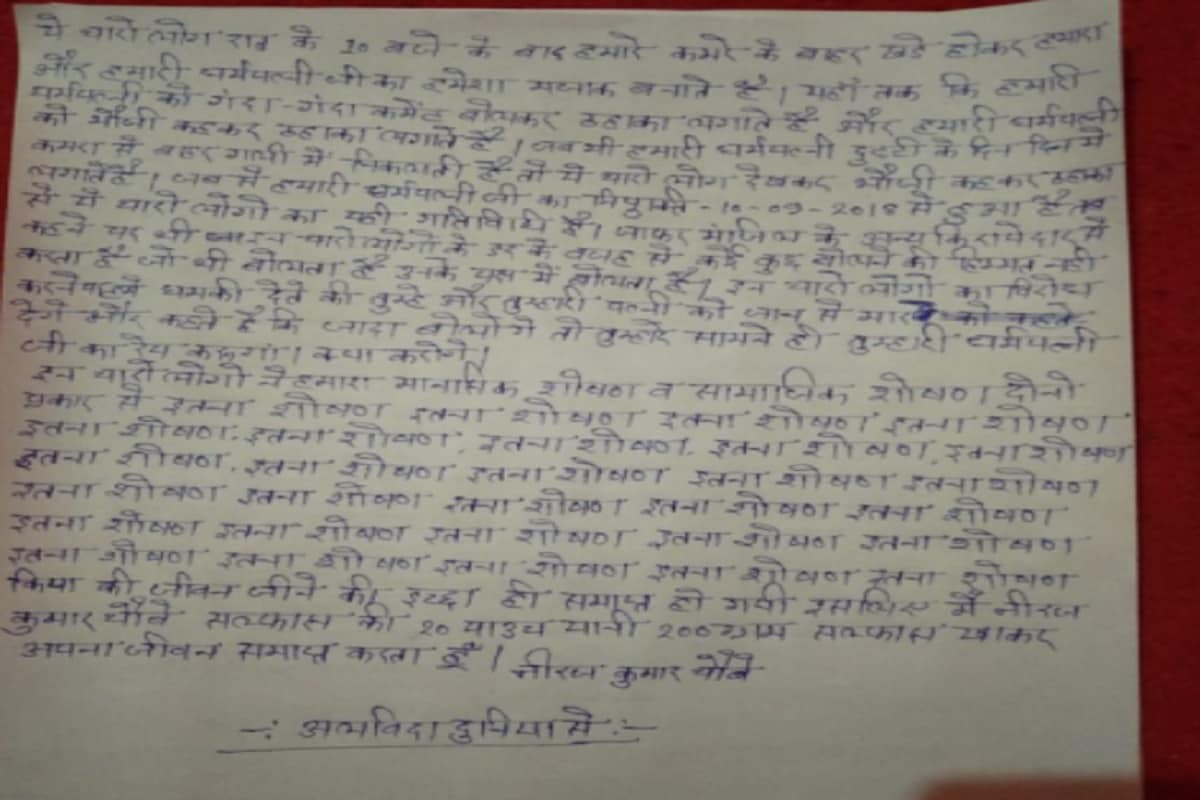 ये चारो लोग रात के 10 बजे के बाद हमारे कमरे के बाहर खडे होकर हमारा
और हमारी धर्मपत्नी जी का हमेशा मजाक बनाते है। यहाँ तक कि हमारी
धर्मपत्नी को गंदा-गंदा कमेंट बोलकर ठहाका लगाते है और हमारी धर्मपत्नी
को भौजी कहकर ठहाका लगाते है। जब भी हमारी धर्मपत्नी छुट्टी के दिन दिन मे
कमरा से बाहर गली में निकलती है तो ये चारो लोग देखकर भौजी कहकर ठहाका
लगाते है। जब से हमारी धर्मपत्नी जी का नियुक्ति -10-09-2018 से हुआ है तब
से ये चारो लोगो का यही गतिविधि है। मंजिल के अन्य किरायेदार से
कहने पर भी इन चारो लोगो के डर के वजह से कोई कुछ बोलने की हिम्मत नही
करता है जो भी बोलता है उनके पक्ष में बोलता है। इन चारो लोगो का विरोध
करने पर धमकी देते की तुम्हे और तुम्हारी पत्नी को जान से मार
देगे और कहते है कि जादा बोलोगे तो तुम्हारे सामने ही तुम्हारी धर्मपत्नी
जी का रेप करूगां। क्या करोगे।
इन चारो लोगो ने हमारा मानसिक शोषण व सामाजिक शोषण दोनो
प्रकार से इतना शोषण इतना शोषण इतना शोषण इतना शोषण
इतना शोषण, इतना शोषण, इतना शोषण, इतना शोषण, इतना शोषण
इतना शोषण, इतना शोषण इतना शोषण इतना शोषण इतना शोषण
इतना शोषण इतना शोषण इतना शोषण इतना शोषण इतना शोषण
इतना शोषण इतना शोषण इतना शोषण इतना शोषण इतना शोषण
इतना शोषण इतना शोषण इतना शोषण इतना शोषण इतना शोषण
किया की जीवन जीने की इच्छा ही समाप्त हो गयी इसलिए मैं नीरज
कुमार चौबे सल्फास की 20 पाउच यानी 200 ग्राम सल्फास खाकर
अपना जीवन समाप्त करता हूँ।
नीरज कुमार चौबे
-: अलविदा दुनिया से :-